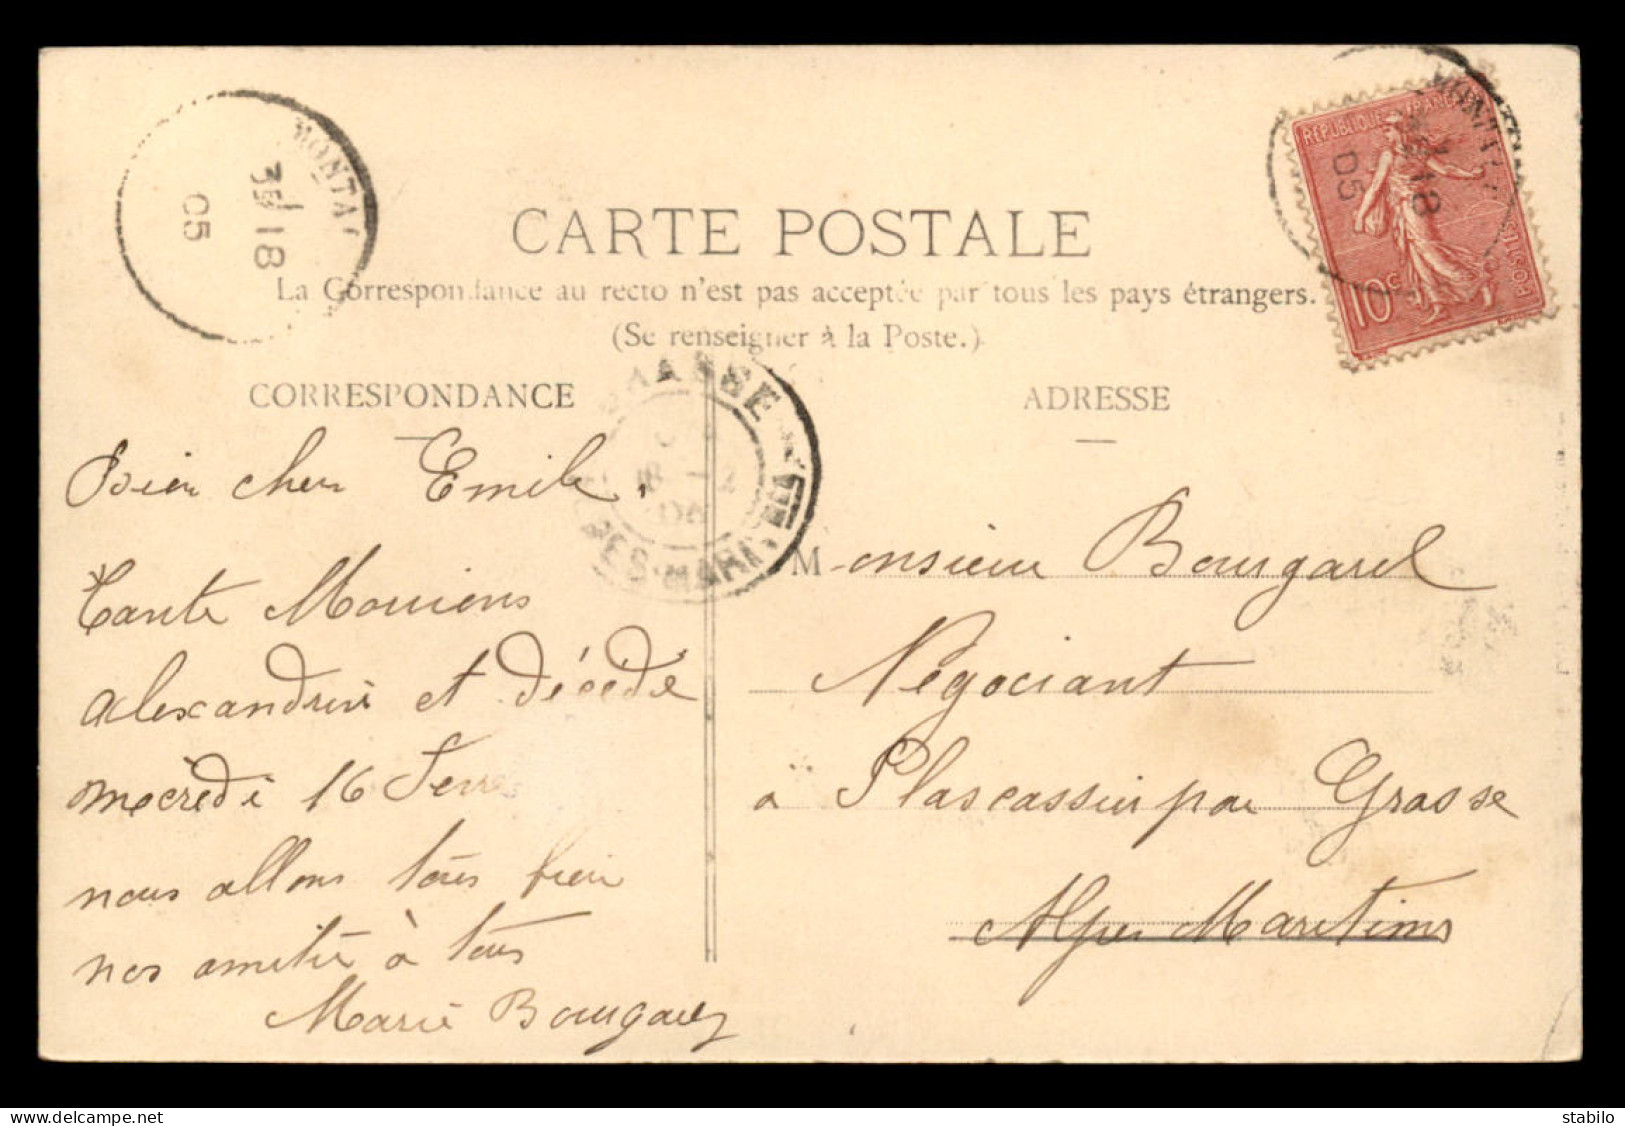 MONTA
3E 18
05
REPUBLIQUE FRANC
10c
18
05
CARTE POSTALE
La Correspondance au recto n'est pas acceptée par tous les pays étrangers.
(Se renseigner à la Poste.)
CORRESPONDANCE
ADRESSE
Bien cher Emile,
Tante Mouriens
alexandrine et décédé
mecrèdi 16
nous allons tous bien
nos amitié à tous
Marie Bourgarel
Monsieur Bourgarel
Négociant
à Plascassier par Grasse
Alpes Maritimes
GRASSE
ALPES-MARITIMES
www.delcampe.net
stabilo